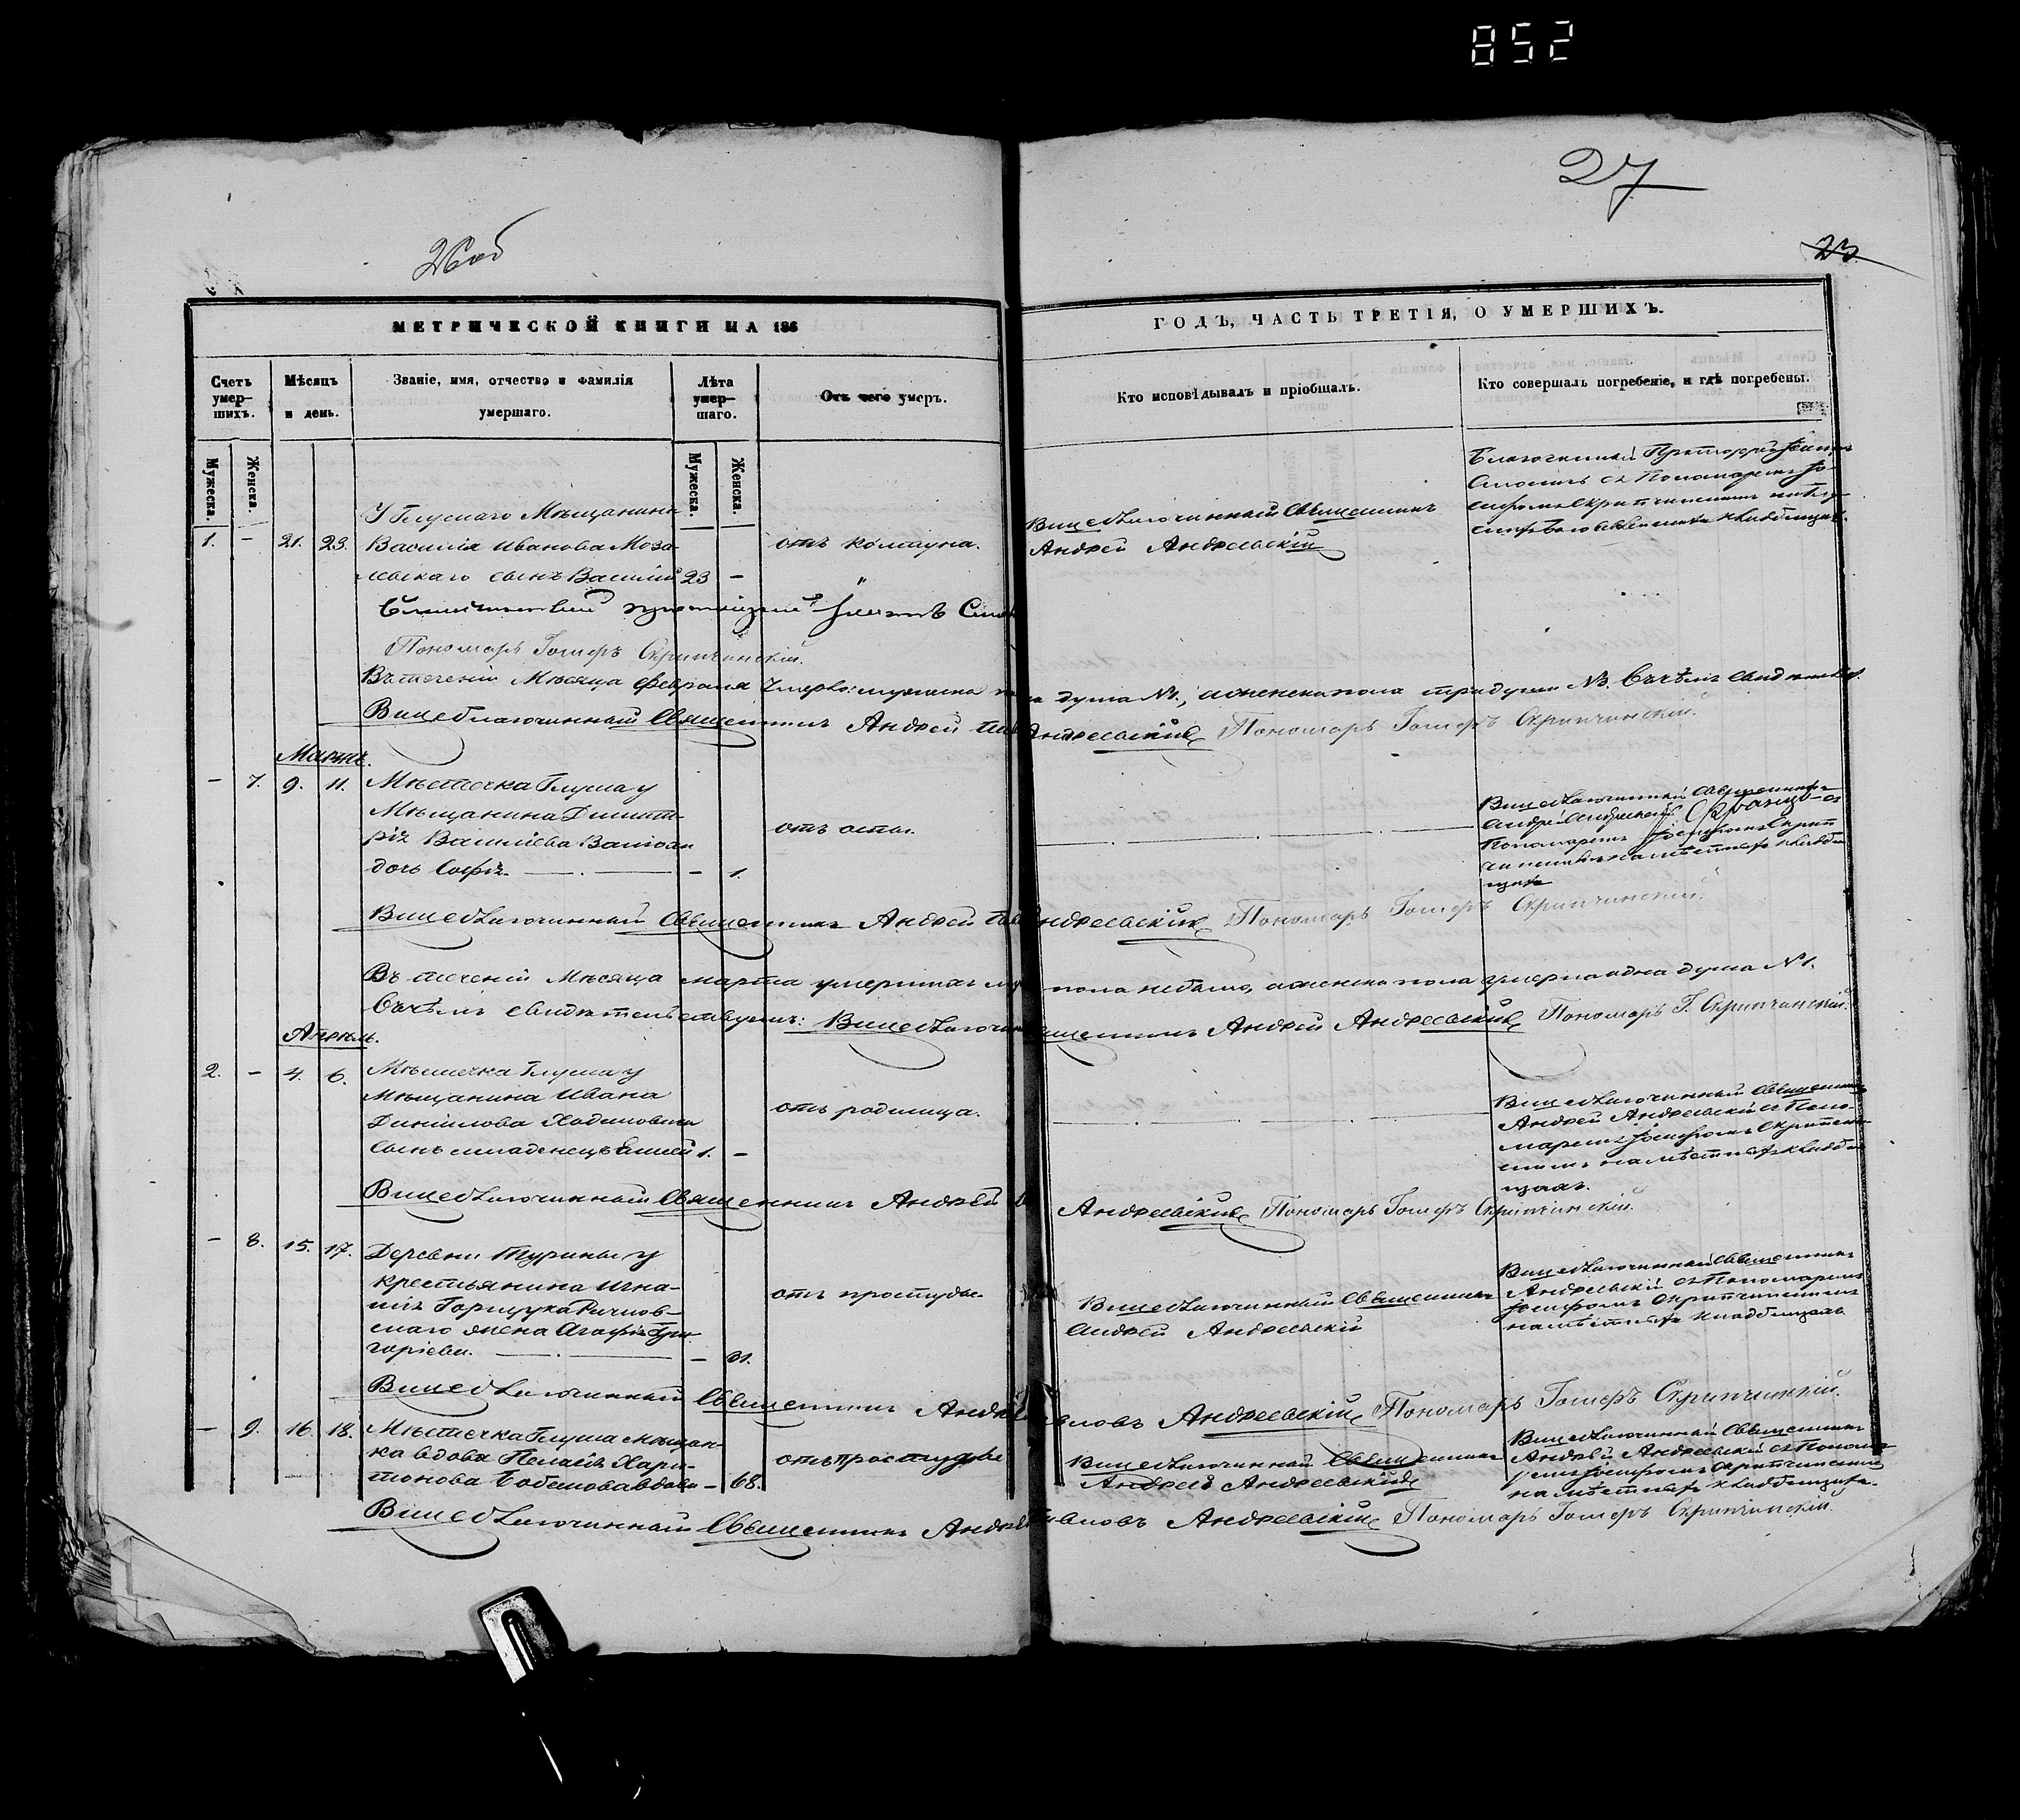 852
27
26об
23
МЕТРИЧЕСКОЙ КНИГИ НА 186
ГОДЪ, ЧАСТЬ ТРЕТІЯ, О УМЕРШИХЪ.
Счетъ умер-шихъ.
Мѣсяцъ и день.
Званіе, имя, отчество и фамилія умершаго.
Лѣта умер-шаго.
Отъ чего умеръ.
Кто исповѣдывалъ и пріобщалъ.
Кто совершалъ погребеніе, и гдѣ погребены.
Мужеска.
Женска.
Мужеска.
Женска.
1. - 21. 23.
У Глускаго Мѣщанина
Василія Иванова Моза-
левскаго сынъ Василій 23 -
отъ колтуна.
Вицеблагочинный Священникъ
Андрей Андреевскій
Благочинный
съ Пономаремъ Іо-
сифомъ Скрипчинскимъ
Пономарь Іосифъ Скрипчинскій.
Въ теченіи Мѣсяца февраля душа №1, а женска пола три души №3. Въ чѣмъ
Вицеблагочинный Священникъ Андрей Андреевскій Пономарь Іосифъ Скрипчинскій.
Мартъ.
- 7. 9. 11.
Мѣстечка Глуска у
Мѣщанина Димит-
рія Василіева
дочь Софія - 1.
отъ оспы.
Вицеблагочинный Священникъ
Андрей Андреевскій съ
Пономаремъ Іосифомъ Скрип-
чинскимъ на мѣстномъ кладби-
щѣ
Вицеблагочинный Священникъ Андрей Андреевскій Пономарь Іосифъ Скрипчинскій.
Въ теченіи Мѣсяца марта умершихъ пола небыло, а женска пола умерла одна душа №1.
Въ чѣмъ свидѣтельствуемъ: Вицеблагочинный Священникъ Андрей Андреевскій Пономарь І. Скрипчинскій.
Апрѣль.
2. - 4. 6.
Мѣстечка Глуска у
Мѣщанина Ивана
Даніилова
сынъ младенецъ 1. -
отъ родимца.
Вицеблагочинный Священникъ
Андрей Андреевскій съ Поно-
маремъ Іосифомъ Скрипчин-
скимъ на мѣстномъ кладби-
щѣ.
Вицеблагочинный Священникъ Андрей Андреевскій Пономарь Іосифъ Скрипчинскій.
- 8. 15. 17.
Деревни Турины у
крестьянина Игна-
тія
скаго жена Агафія Гри-
горіева. - 31.
отъ простуды.
Вицеблагочинный Священникъ
Андрей Андреевскій
Вицеблагочинный Священникъ
Андреевскій съ Пономаремъ
Іосифомъ Скрипчинскимъ
на мѣстномъ кладбищѣ
Вицеблагочинный Священникъ Андрей Павловъ Андреевскій Пономарь Іосифъ Скрипчинскій.
- 9. 16. 18.
Мѣстечка Глуска мѣщан-
ка вдова Пелагія Хари-
тонова - 68.
отъ простуды
Вицеблагочинный Священникъ
Андрей Андреевскій
Вицеблагочинный Священникъ
Андрей Андреевскій съ Понома-
ремъ Іосифомъ Скрипчинскимъ
на мѣстномъ кладбищѣ.
Вицеблагочинный Священникъ Андрей Павловъ Андреевскій Пономарь Іосифъ Скрипчинскій.